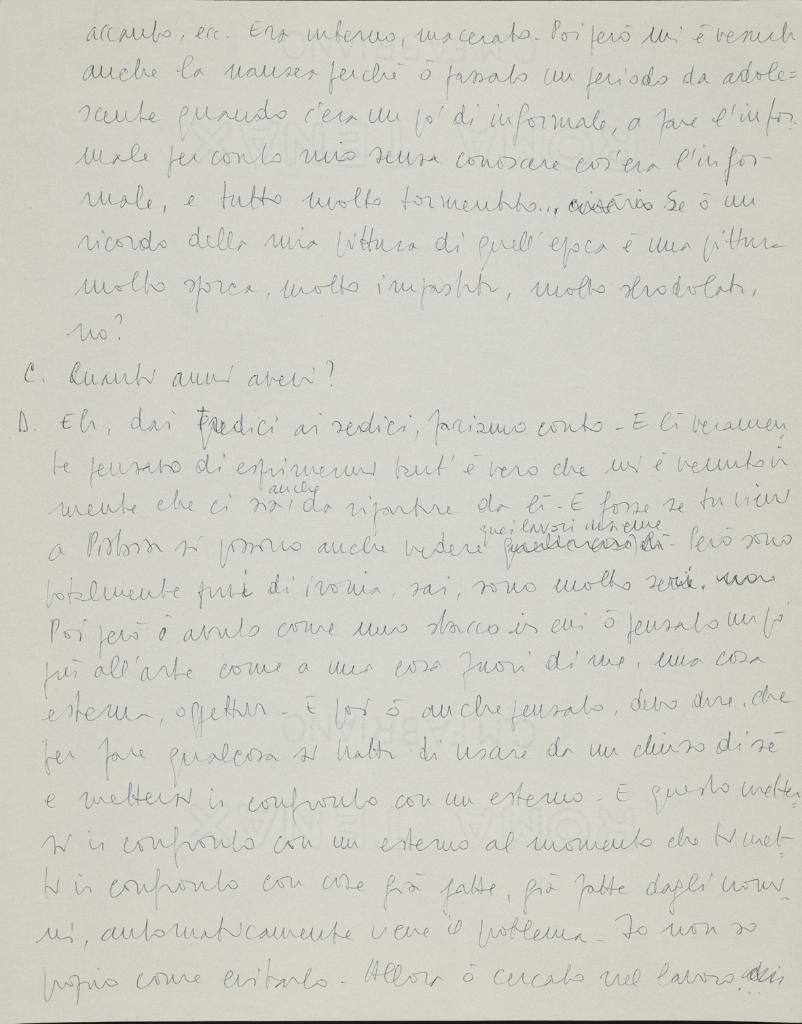 accanto, ecc. Era interno, macerato. Poi però mi è venuta
anche la nausea perché ò passato un periodo da adole=
scente quando c'era un pò di informale, a fare l'infor-
male per conto mio senza conoscere cos'era l'infor-
male, e tutto molto tormentato... Se ò un
ricordo della mia pittura di quell'epoca è una pittura
molto sporca, molto impastata, molto sbrodolata,
no?
C. Quanti anni avevi?
D. Eh, dai tredici ai sedici, facciamo conto - E lì veramen
te pensato di esprimermi tant'è vero che mi è venuto in
mente che ci sia anche da ripartire da lì - E forse se tu vieni
a Pistoia si possono anche vedere quei lavori insieme - Però sono
totalmente privi di ironia, sai, sono molto seri.
Poi però ò avuto come uno stacco in cui ò pensato un pò
più all'arte come a una cosa fuori di me, una cosa
esterna, oggettiva - E poi ò anche pensato, devo dire, che
per fare qualcosa si tratta di uscire da un chiuso di sé
e mettersi in confronto con un esterno - E questo metter
si in confronto con un esterno al momento che ti met-
ti in confronto con cose già fatte, già fatte dagli uomi
ni, automaticamente viene il problema - Io non so
proprio come evitarlo - Allora ò cercato nel lavoro
CMFABRIANO
ROMA TENAX
CMFABRIANO
ROMA TENAX